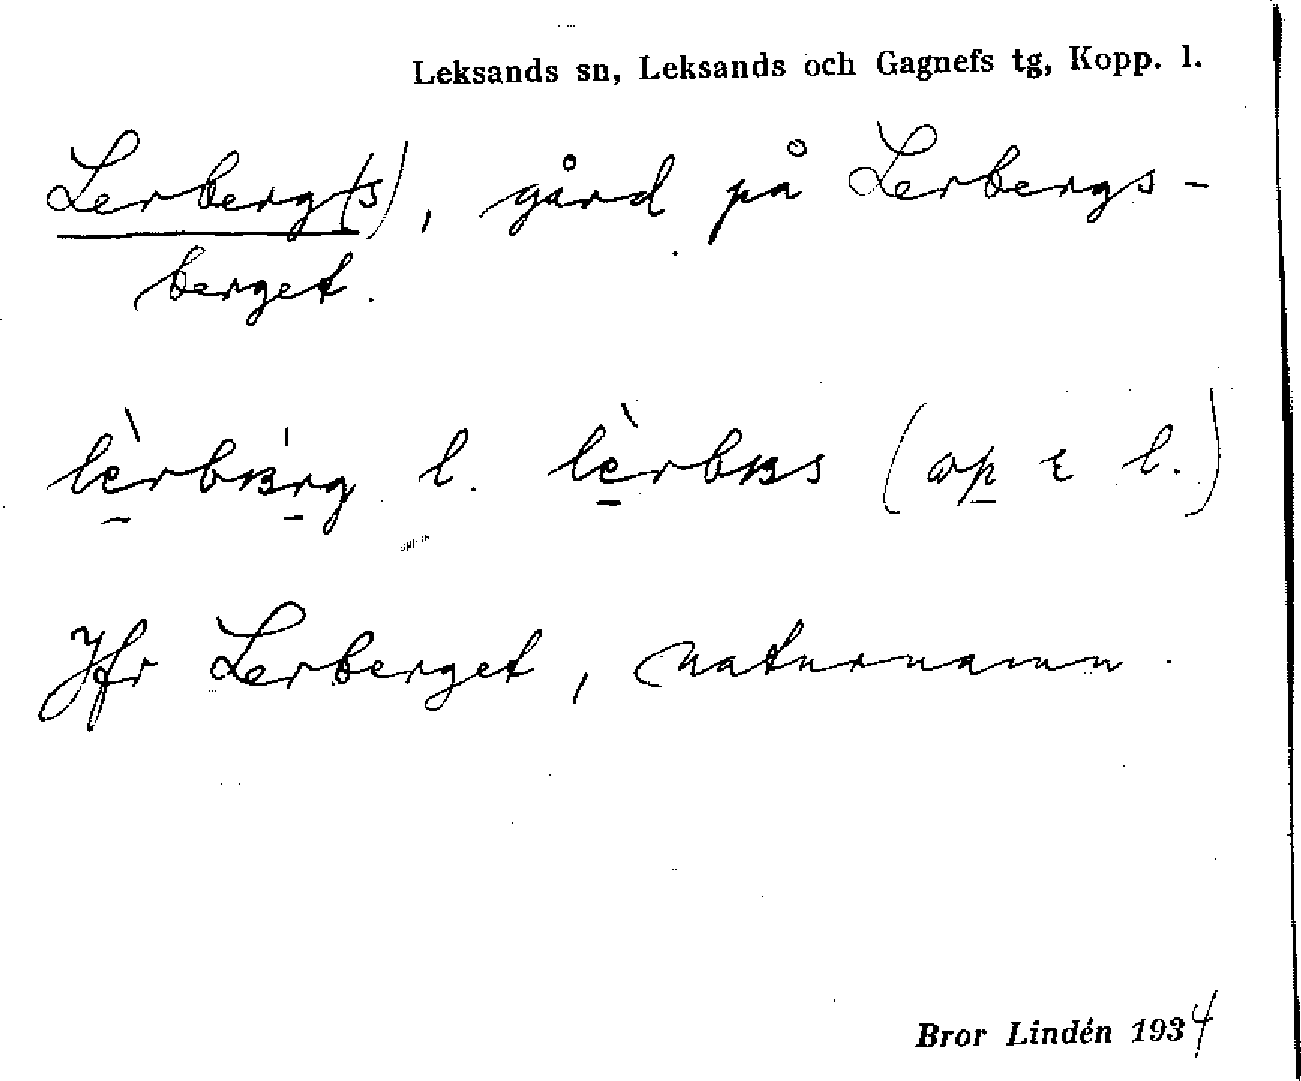 Leksands sn, Leksands och Gagnefs tg, Kopp. l.
Lerberg(s), gård på Lerbergs-
berget.
l. (op l.)
Jfr Lerberget, naturnamn.
Bror Lindén 1934